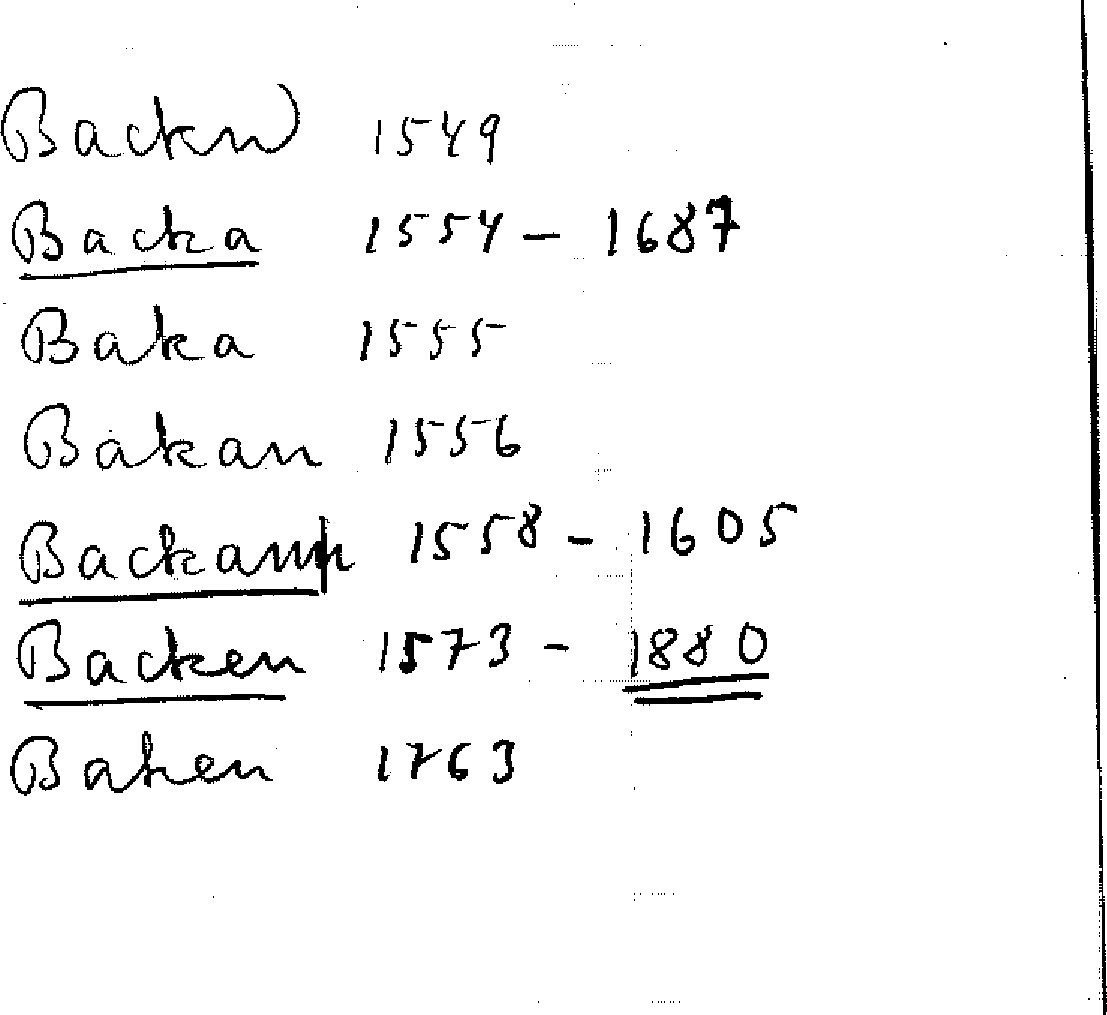 Backn 1549
Backa 1554 – 1687
Baka 1555
Bakan 1556
Backan 1558 – 1605
Backen 1573 – 1880
Baken 1763